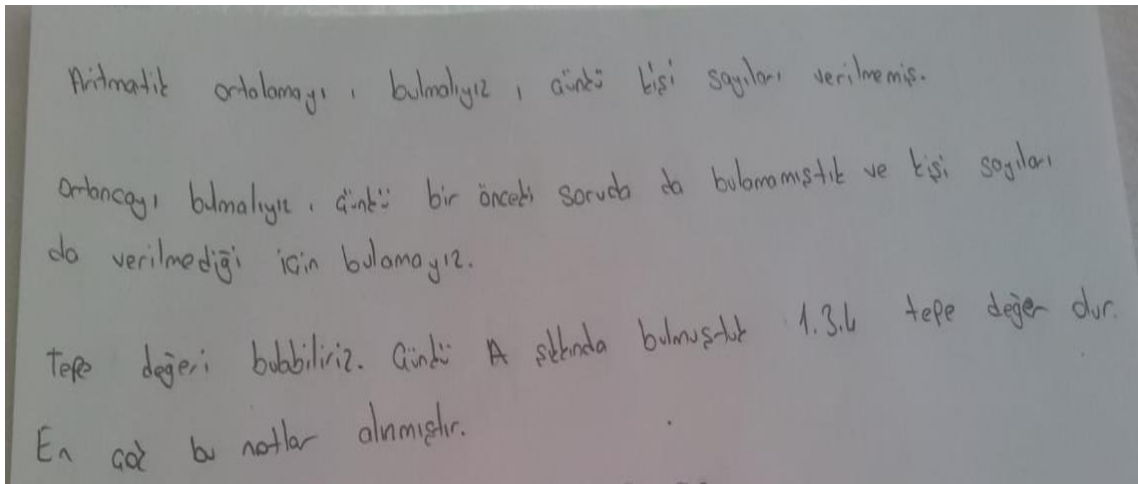 Aritmatik ortalamayı, bulmalıyız, çünkü kişi sayıları verilmemiş.
Ortancayı bulmalıyız. Çünkü bir önceki soruda da bulamamıştık ve kişi sayıları
da verilmediği için bulamayız.
Tepe değeri bulabiliriz. Çünkü A şıkkında bulmuştuk 1.3.4 tepe değer dur.
En çok bu notlar alınmıştır.